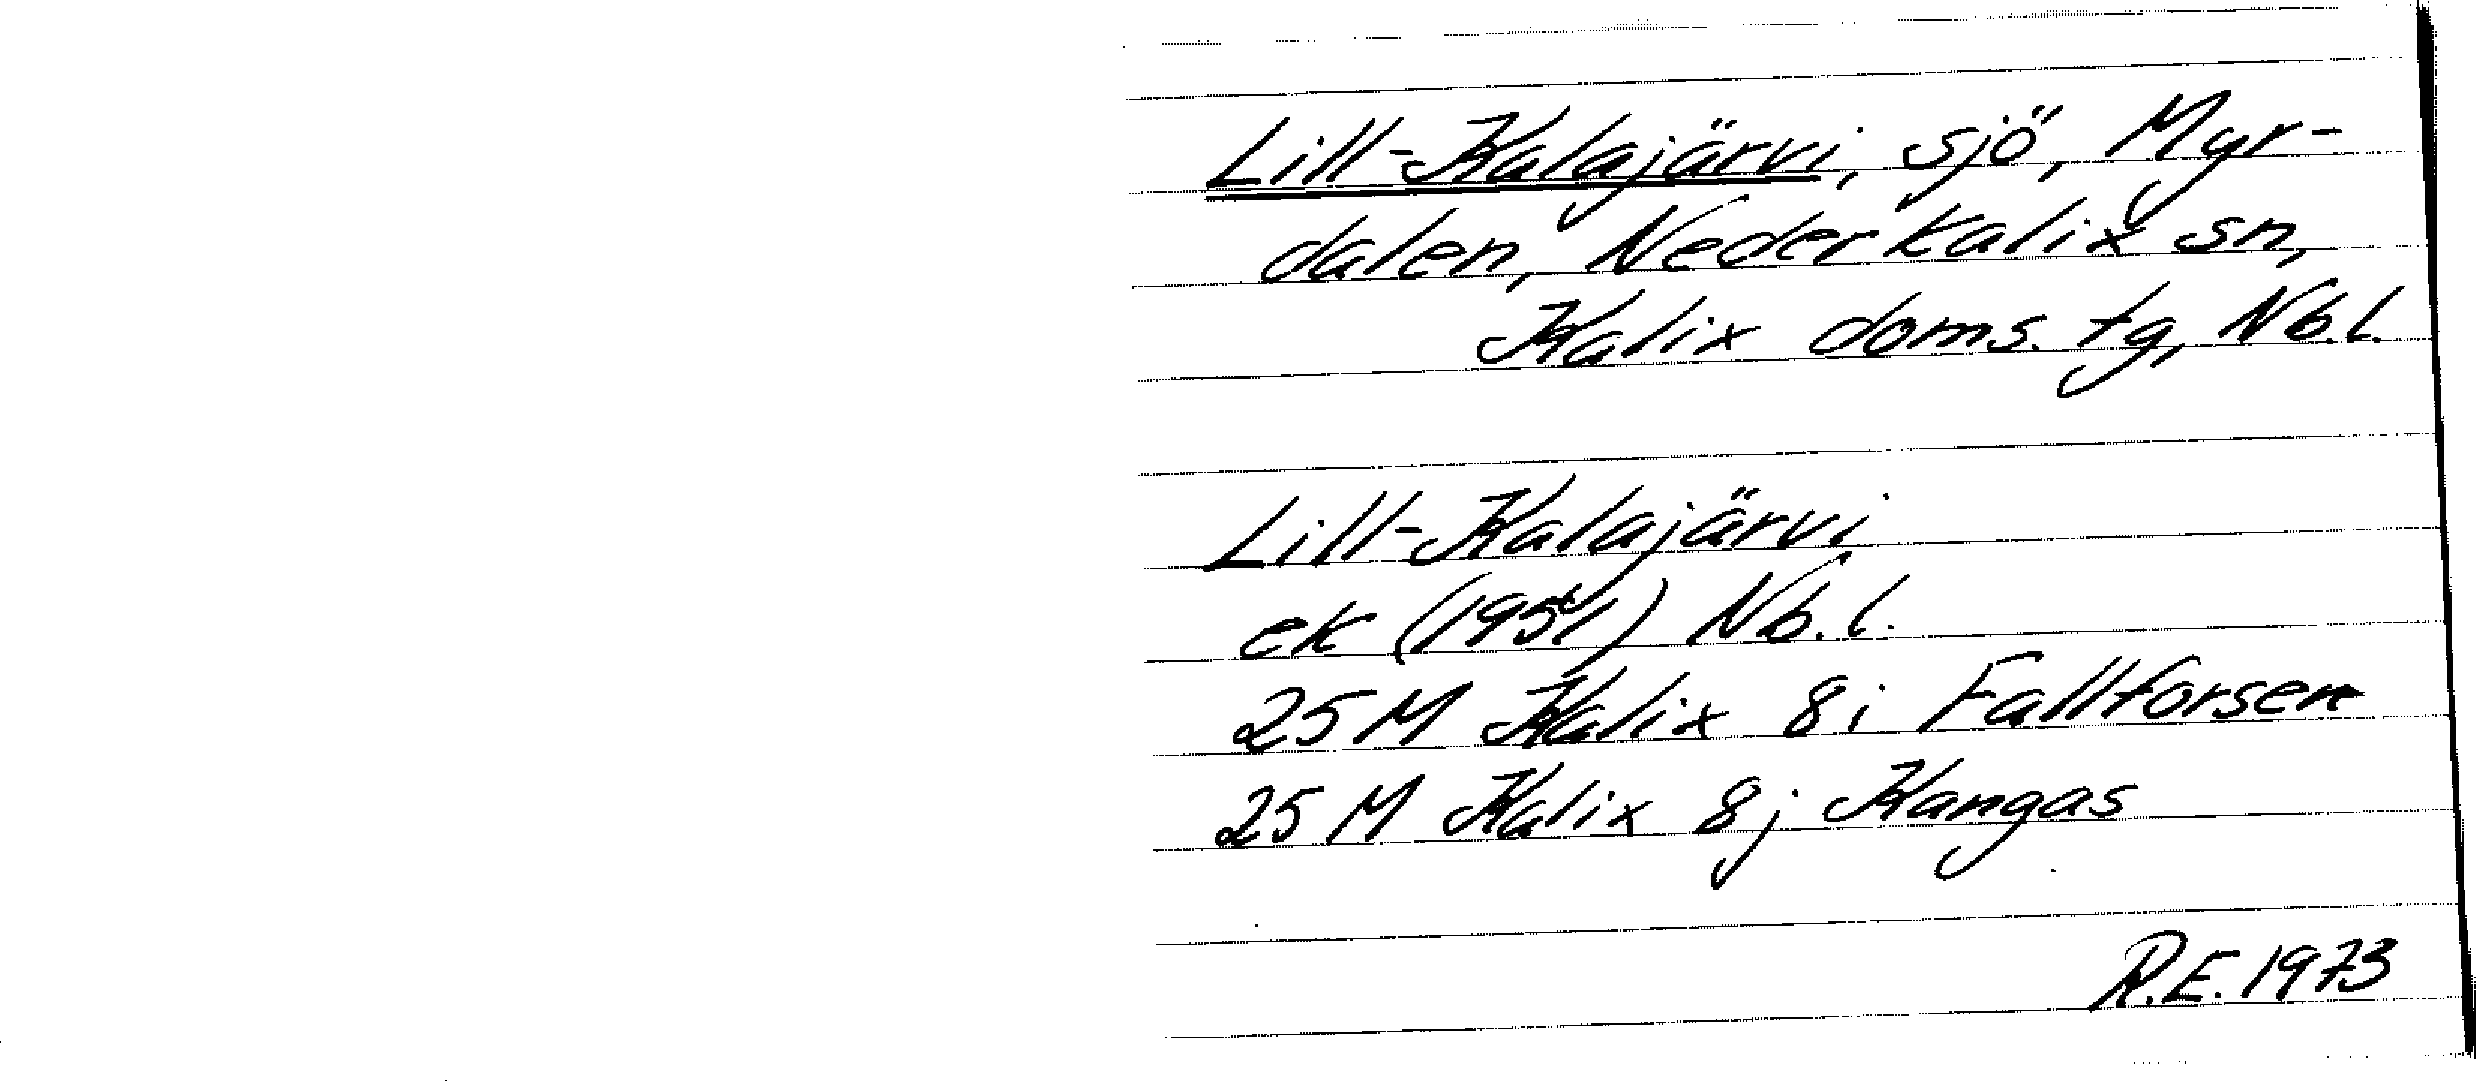 Lill-Kalajärvi, sjö, Myr-
dalen, Nederkalix sn,
Kalix doms. tg, Nb.l.
Lill-Kalajärvi
ek (1951) Nb.l.
25 M Kalix 8i Fallforsen
25 M Kalix 8j Kangas
R.E. 1973